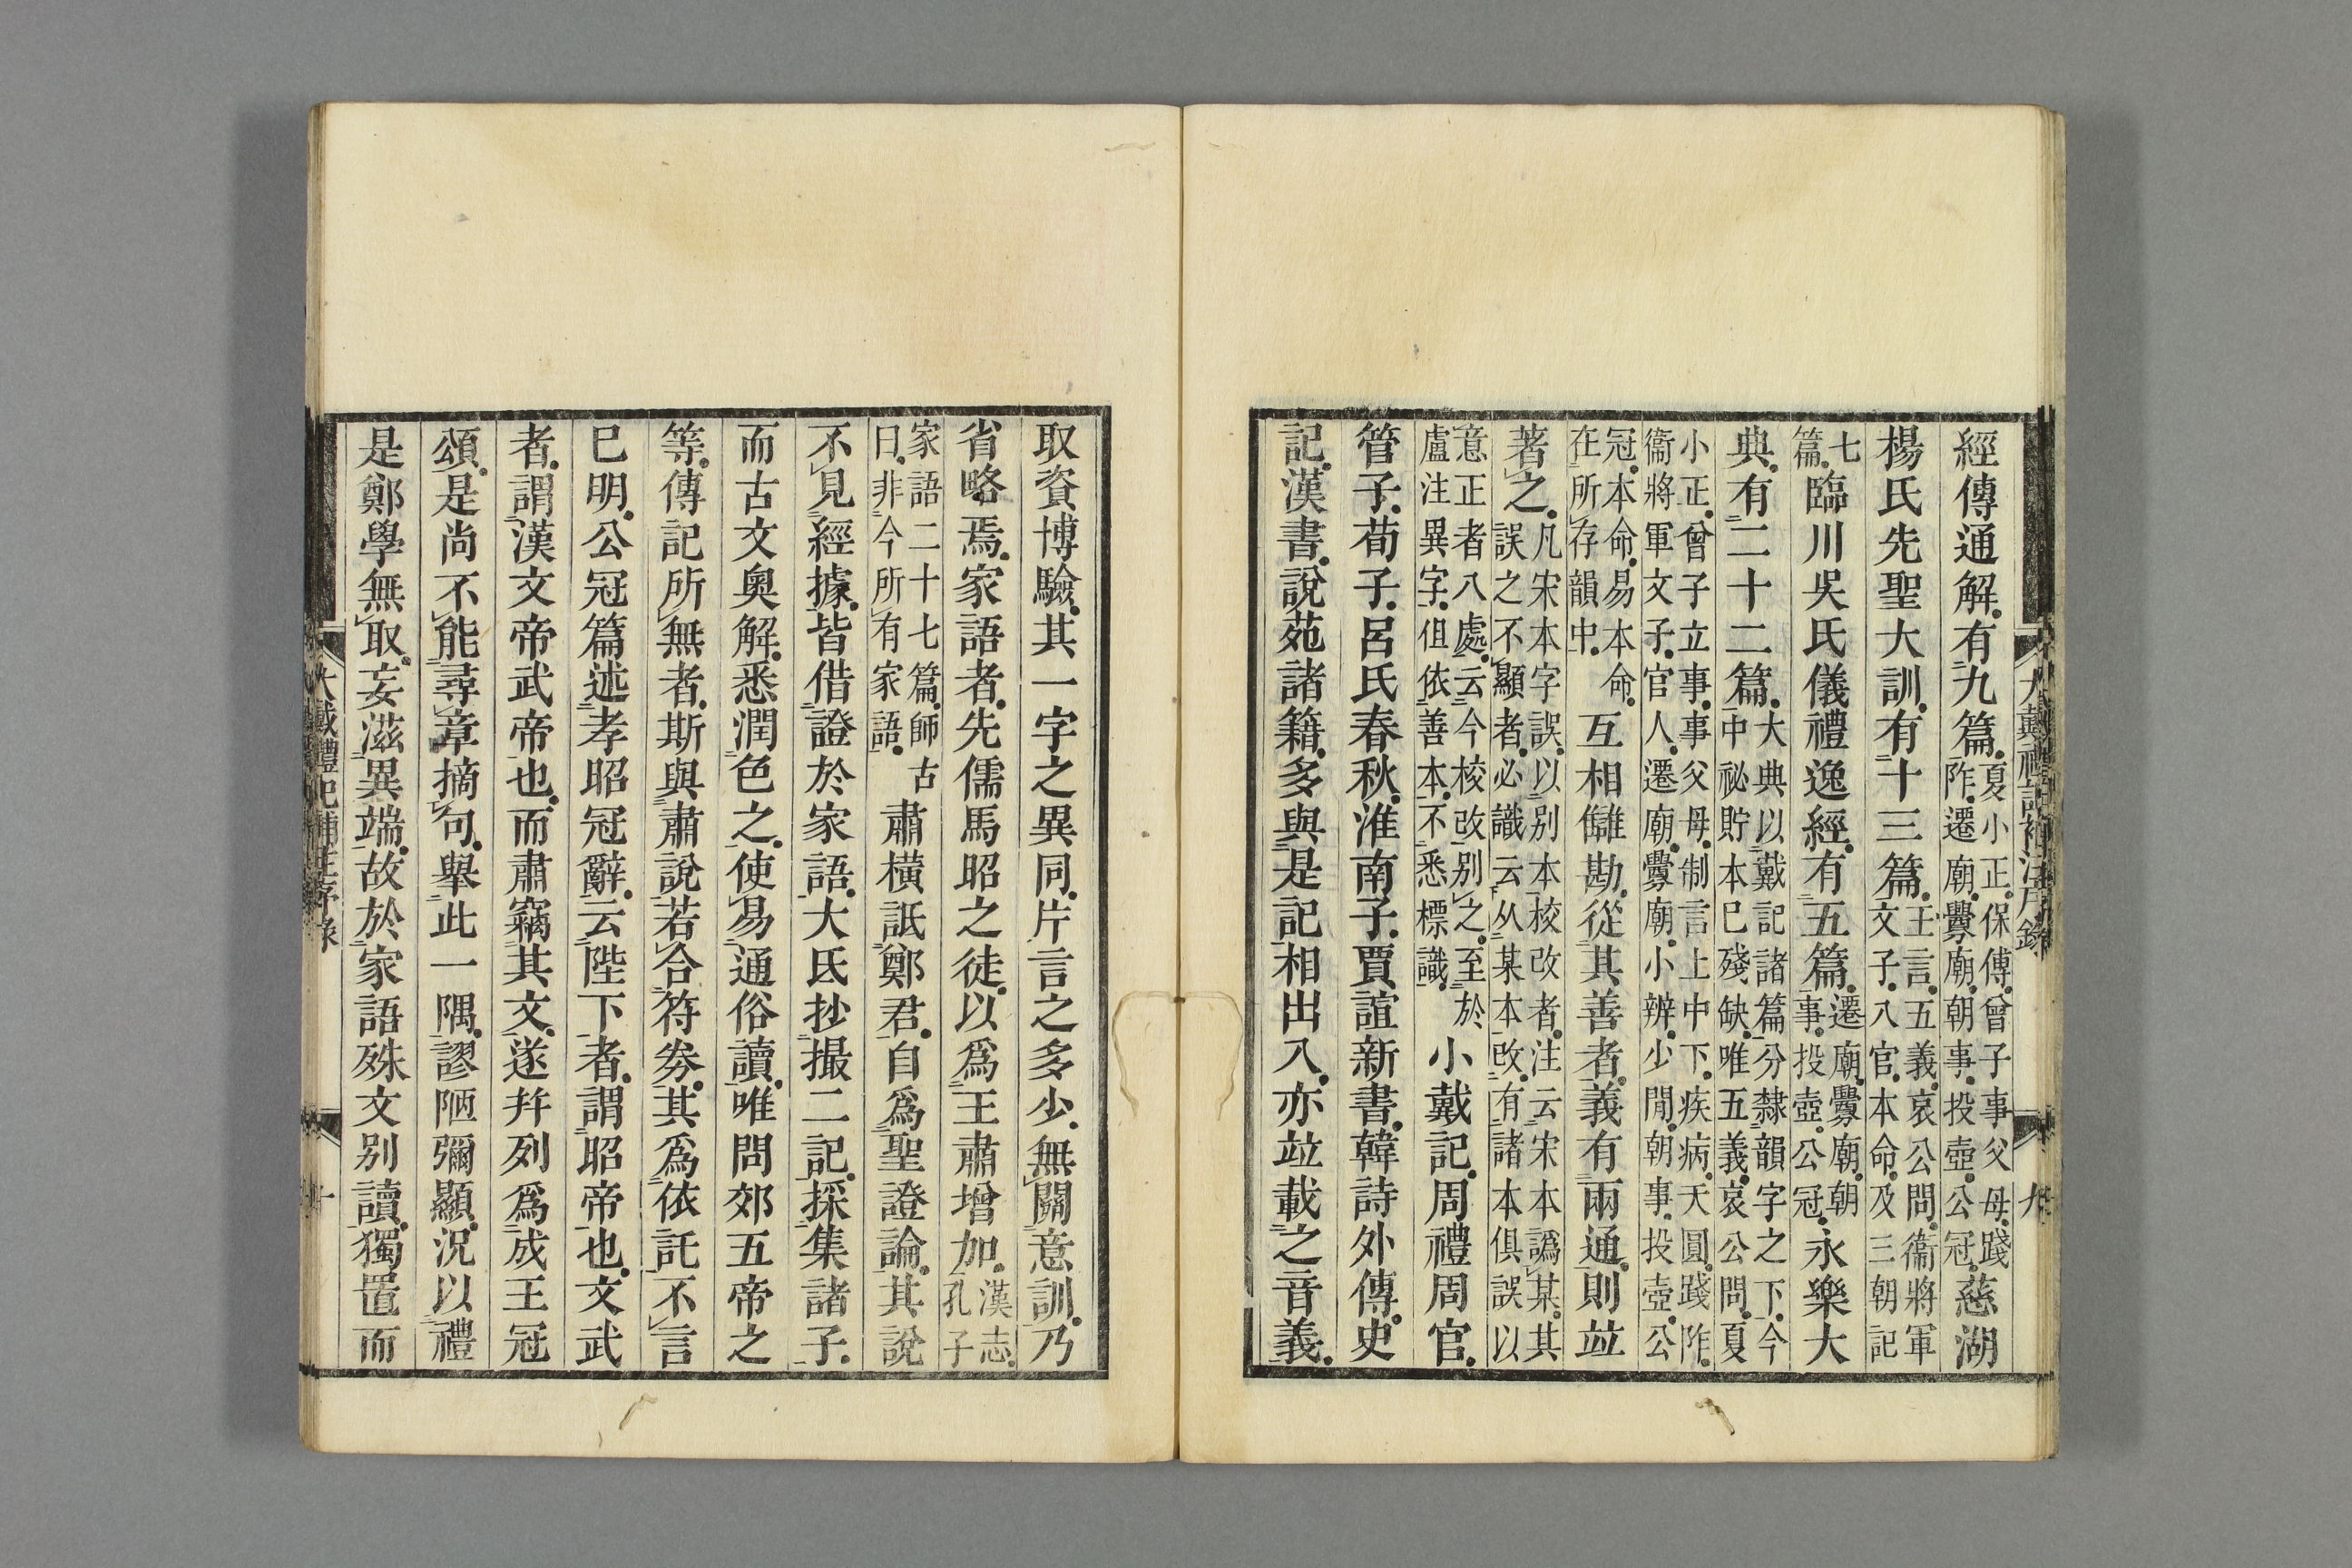 經傳通解。有九篇。夏小正。保傅。曾子事父母。踐阼。遷廟。釁廟。朝事。投壺。公冠。慈湖
楊氏先聖大訓。有十三篇。王言。五義。哀公問。衞將軍文子。八官。本命。及三朝記
七篇。臨川吳氏儀禮逸經。有五篇。遷廟。釁廟。朝事。投壺。公冠。永樂大
典。有二十二篇。大典以戴記諸篇分隸韻字之下。今中祕貯本已殘缺。唯五義。哀公問。夏
小正。曾子立事。事父母。制言上中下。疾病。天圓。踐阼。衞將軍文子。官人。遷廟。釁廟。小辨。少閒。朝事。投壺。公
冠。本命。易本命。在所存韻中。互相讎勘。從其善者。義有兩通。則竝
著之。凡宋本字誤。以别本校改者。注云宋本譌某。其誤之不顯者。必識云从某本改。有諸本俱誤以
意正者八處。云今校改别之。至於盧注異字。但依善本。不悉標識。小戴記。周禮周官。
管子。荀子。呂氏春秋。淮南子。賈誼新書。韓詩外傳。史
記。漢書。說苑諸籍。多與是記相出入。亦竝載之音義。
大戴禮記補注序錄
九
取資博驗。其一字之異同。片言之多少。無關意訓。乃
省略焉。家語者。先儒馬昭之徒。以爲王肅增加。漢志。孔子
家語二十七篇。師古曰。非今所有家語。肅橫詆鄭君。自爲聖證論。其說
不見經據。皆借證於家語。大氐抄撮二記。採集諸子。
而古文奥解。悉潤色之。使易通俗讀。唯問郊五帝之
等。傳記所無者。斯與肅說若合符券。其爲依託。不言
已明。公冠篇述孝昭冠辭。云陛下者。謂昭帝也。文武
者。謂漢文帝武帝也。而肅竊其文。遂幷列爲成王冠
頌。是尚不能尋章摘句。舉此一隅。謬陋彌顯。況以禮
是鄭學無取。妄滋異端。故於家語殊文别讀。獨置而
大戴禮記補注序錄
十